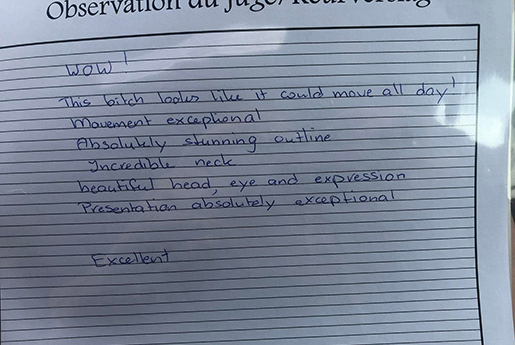 Observation du Juge/Keurverslag
WOW!
This bitch looks like it could move all day!
Movement exceptional
Absolutely stunning outline
Incredible neck
beautiful head, eye and expression
Presentation absolutely exceptional
Excellent